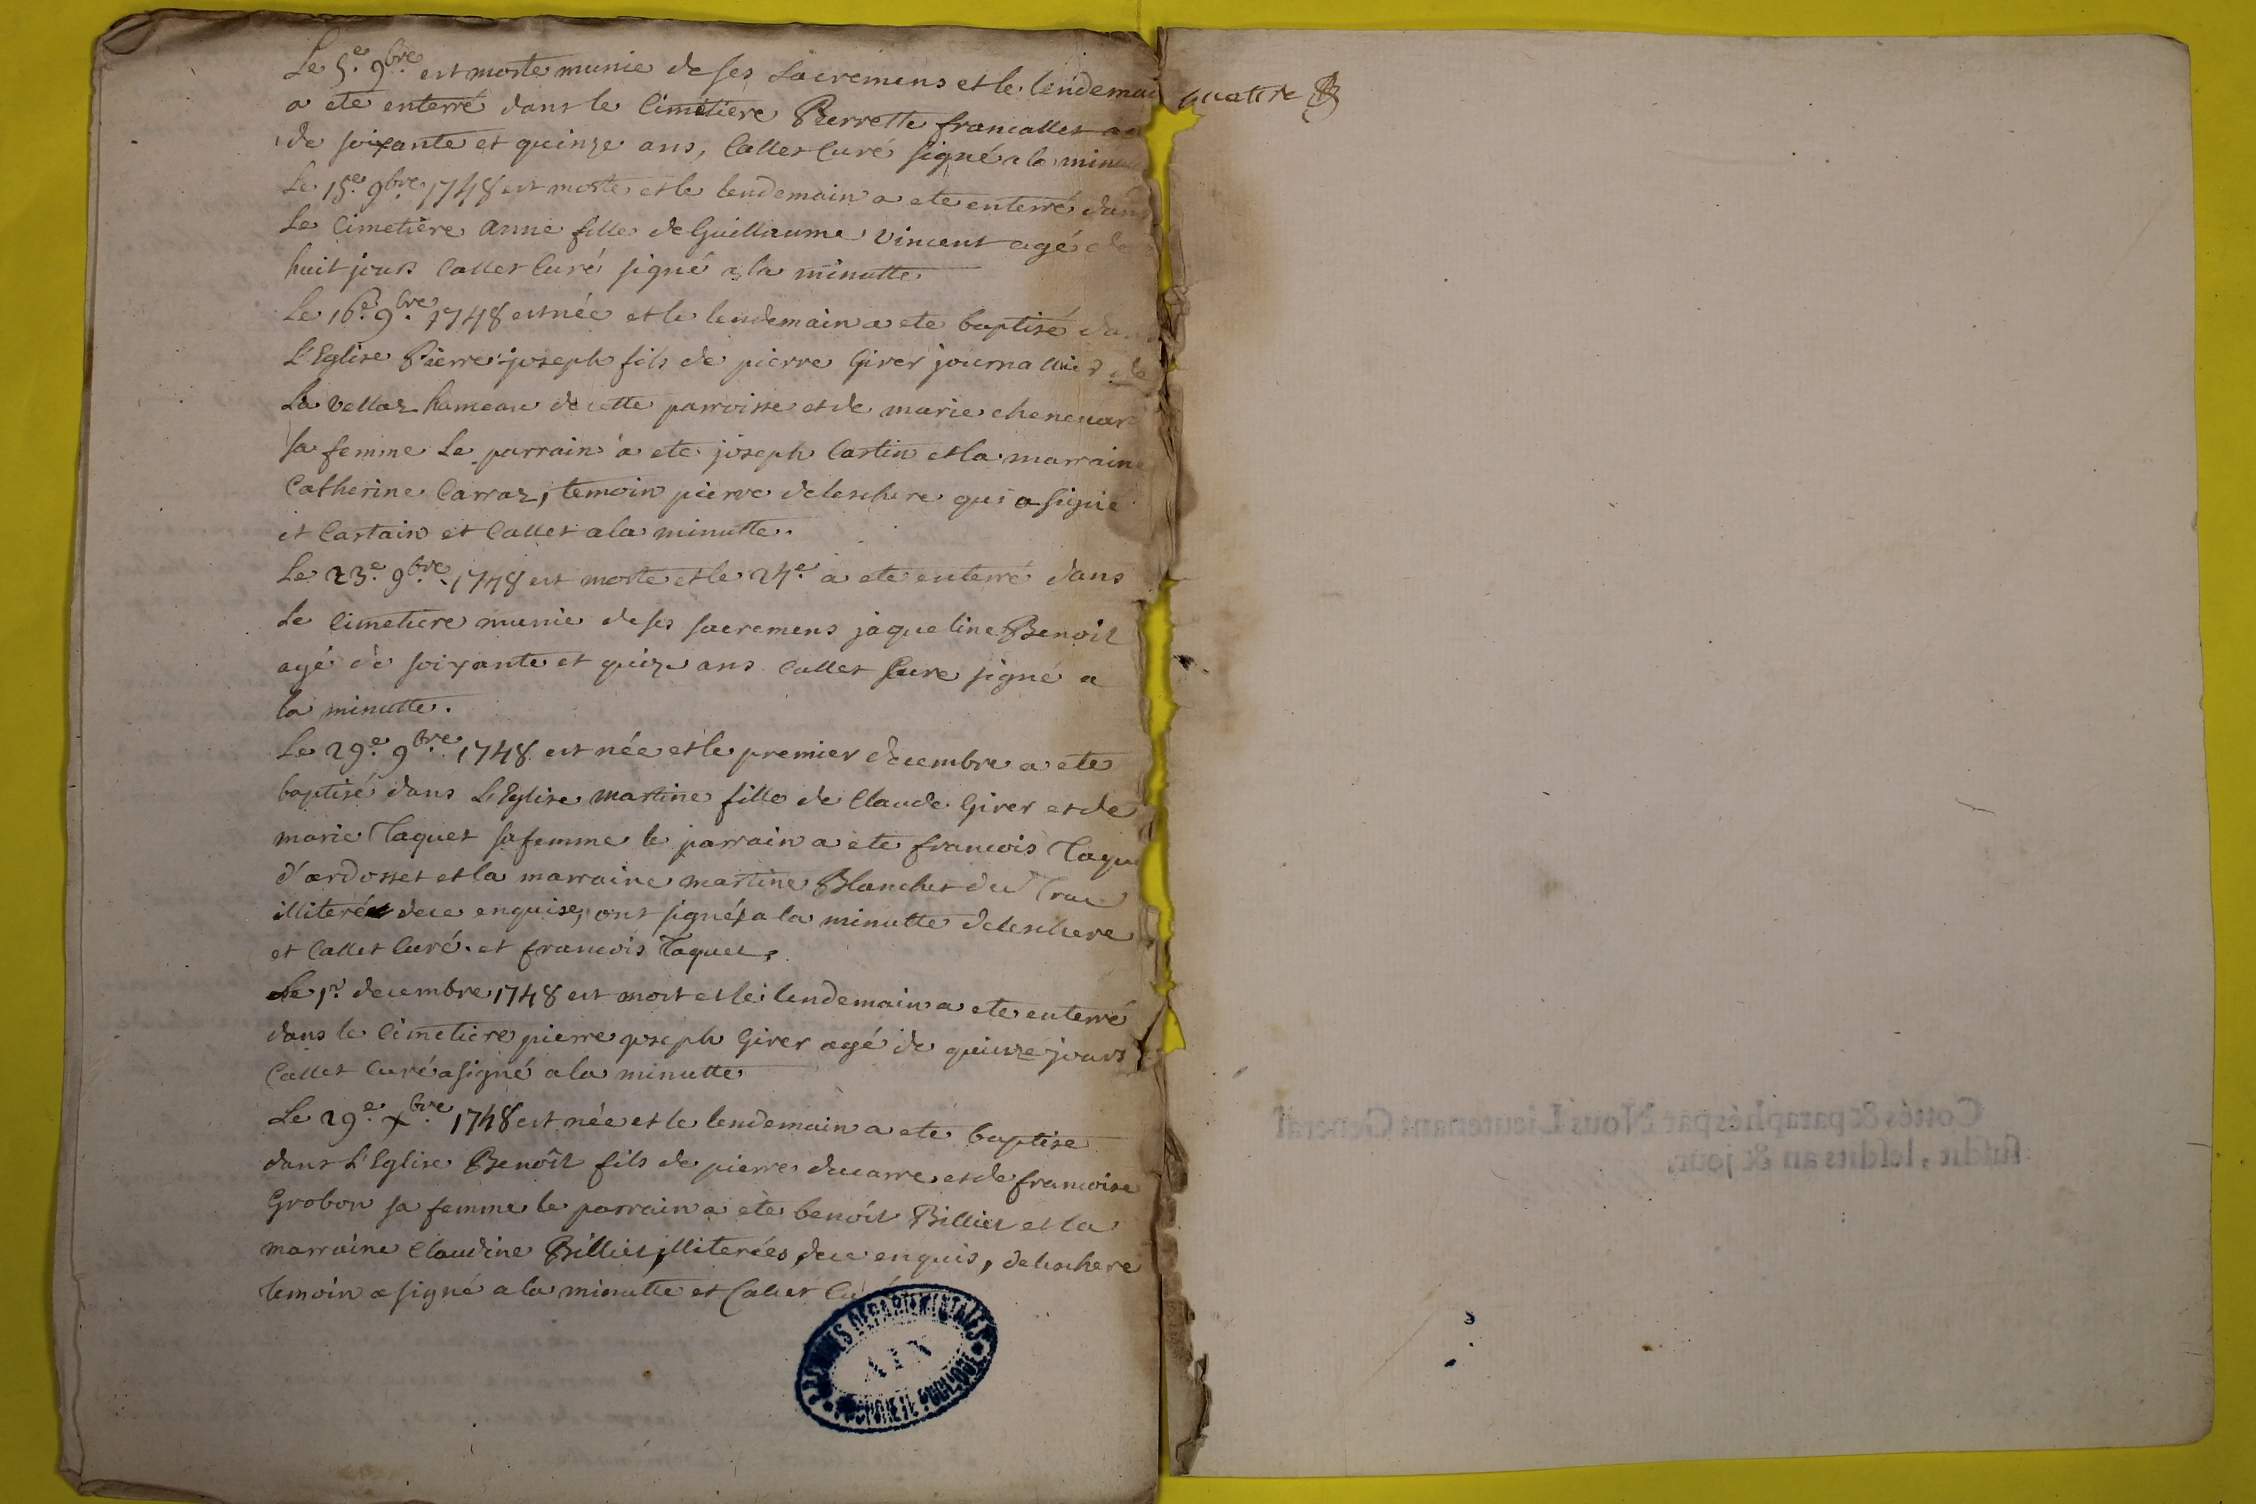 Le 5e. 9bre. est morte munie de ses Sacremens et le lendemai
a ete enterré dans le Cimetiere Pierrette francallet
de soixante et quinze ans, Callet Curé signé a la minu
Le 15e. 9bre. 1748 est morte et le lendemain a ete enterré dans
Le Cimetiere anne fille de Guillaume vincent agé de
huit jours Callet Curé signé a la minutte
Le 16e. 9bre. 1748 est née et le lendemain a ete baptisé da
L'Eglise Pierre-joseph fils de pierre Girer journallier de
La Vellaz hameau de cette parroisse et de marie chenevar
sa femme Le parrain a ete joseph Castin et la marraine
Catherine Carraz, temoin pierre deleschere qui a signé
et Castain et Callet a la minutte.
Le 23e. 9bre. 1748 est morte et le 24e. a ete enterré dans
Le Cimetiere munie de ses sacremens jaqueline Benoit
agé de soixante et quize ans Callet Cure signé a
la minutte.
Le 29e. 9bre. 1748 est née et le premier decembre a ete
baptisé dans L'Eglise martine fille de Claude Girer et de
marie Taquet sa femme le parrain a ete francois Taque
d'ardosset et la marraine martine Blanchet du Truc
illiteré de ce enquise, ont signés a la minutte deleschere
et Callet Curé. et francois Taquet.
Le 1r. decembre 1748 est mort et le lendemain a ete enterré
dans le Cimetiere pierre joseph Girer agé de quinze jours
Callet Curé a signé a la minutte
Le 29e. xbre. 1748 est née et le lendemain a ete baptise
dans L'Eglise Benoît fils de pierre ducarre et de francoise
Grobon sa femme le parrain a ete benoît Billiet et la
marraine Claudine Billiet, illiterées, de ce enquis, deleschere
temoin a signé a la minutte et Callet Cu
ARCHIVES DEPARTEMENTALES
AIN
PROPRIETE PUBLIQUE
quattre
Cottés & paraphés par Nous Lieutenant General
susdit, lesdits an & jour.